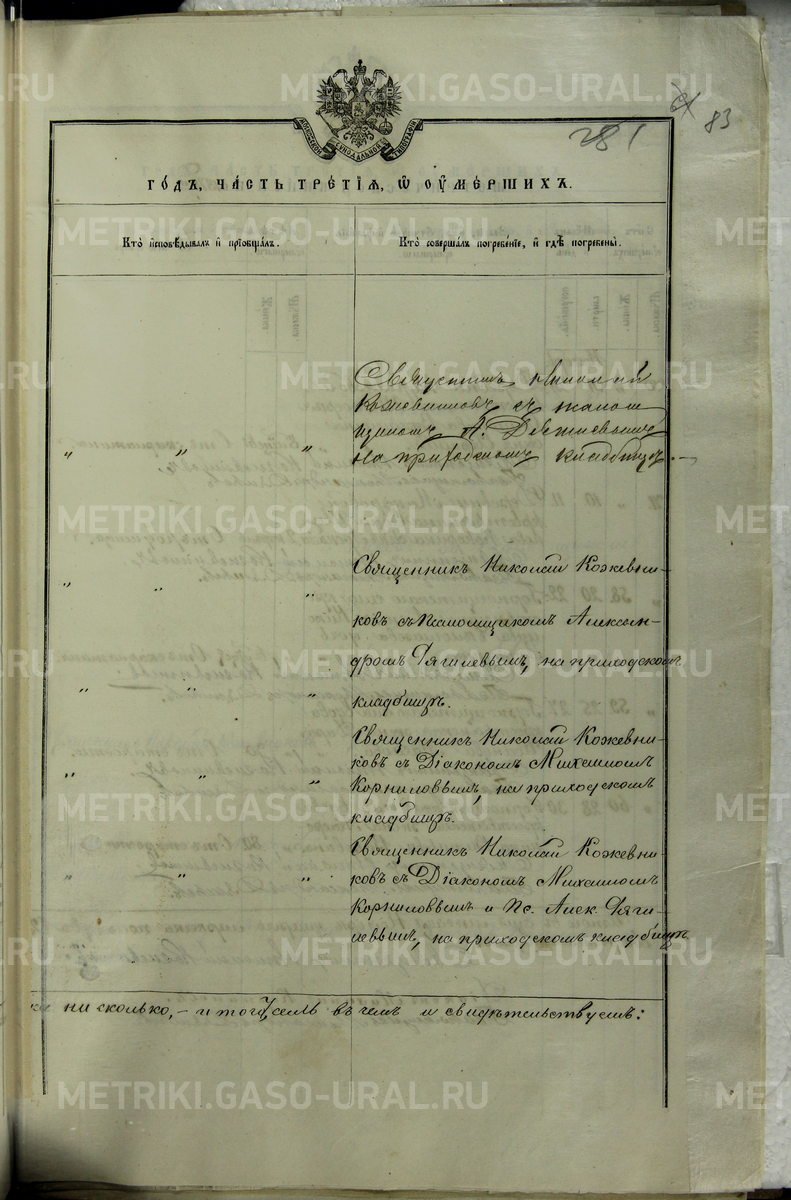 281
83
МОСКОВСКОЙ СИНОДАЛЬНОЙ ТИПОГРАФІИ
ГО́ДЪ, ЧА́СТЬ ТРЕ́ТІѦ, Ѡ ОУ҆МЕ́РШИХЪ.
Кто̀ и҆сповѣ́дывалъ и҆ прїѡбща́лъ.
Кто̀ соверша́лъ погребе́нїе, и҆ гдѣ̀ погребены̀.
Священникъ Николай
Кожевниковъ съ псалом
щикомъ А. Дягилевымъ
" " " на приходскомъ кладбищѣ. —
Священникъ Николай Кожевни-
" " "
ковъ съ Псаломщикомъ Алексан-
дромъ Дягилевымъ, на приходскомъ
" " " кладбищѣ.
Священникъ Николай Кожевни-
ковъ съ Діакономъ Михаиломъ
" " " Корниловымъ, на приходскомъ
кладбищѣ.
Священникъ Николай Кожевни-
" " " ковъ съ Діакономъ Михаиломъ
Корниловымъ и Пс. Алек. Дяги-
левымъ, на приходскомъ кладбищѣ
ни сколько, — и того, въ чемъ и свидѣтельствуемъ:
METRIKI.GASO-URAL.RU